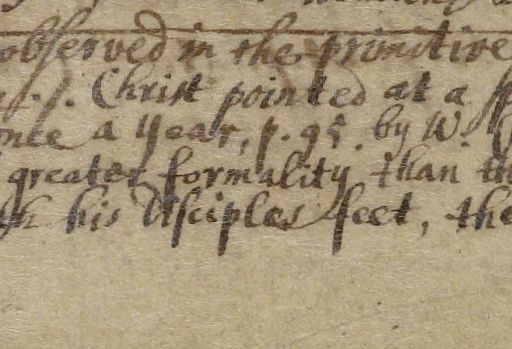 observed in the primitive
Christ pointed at a
once a year, p. 95. by W.
greater formality than
his disciples feet, the